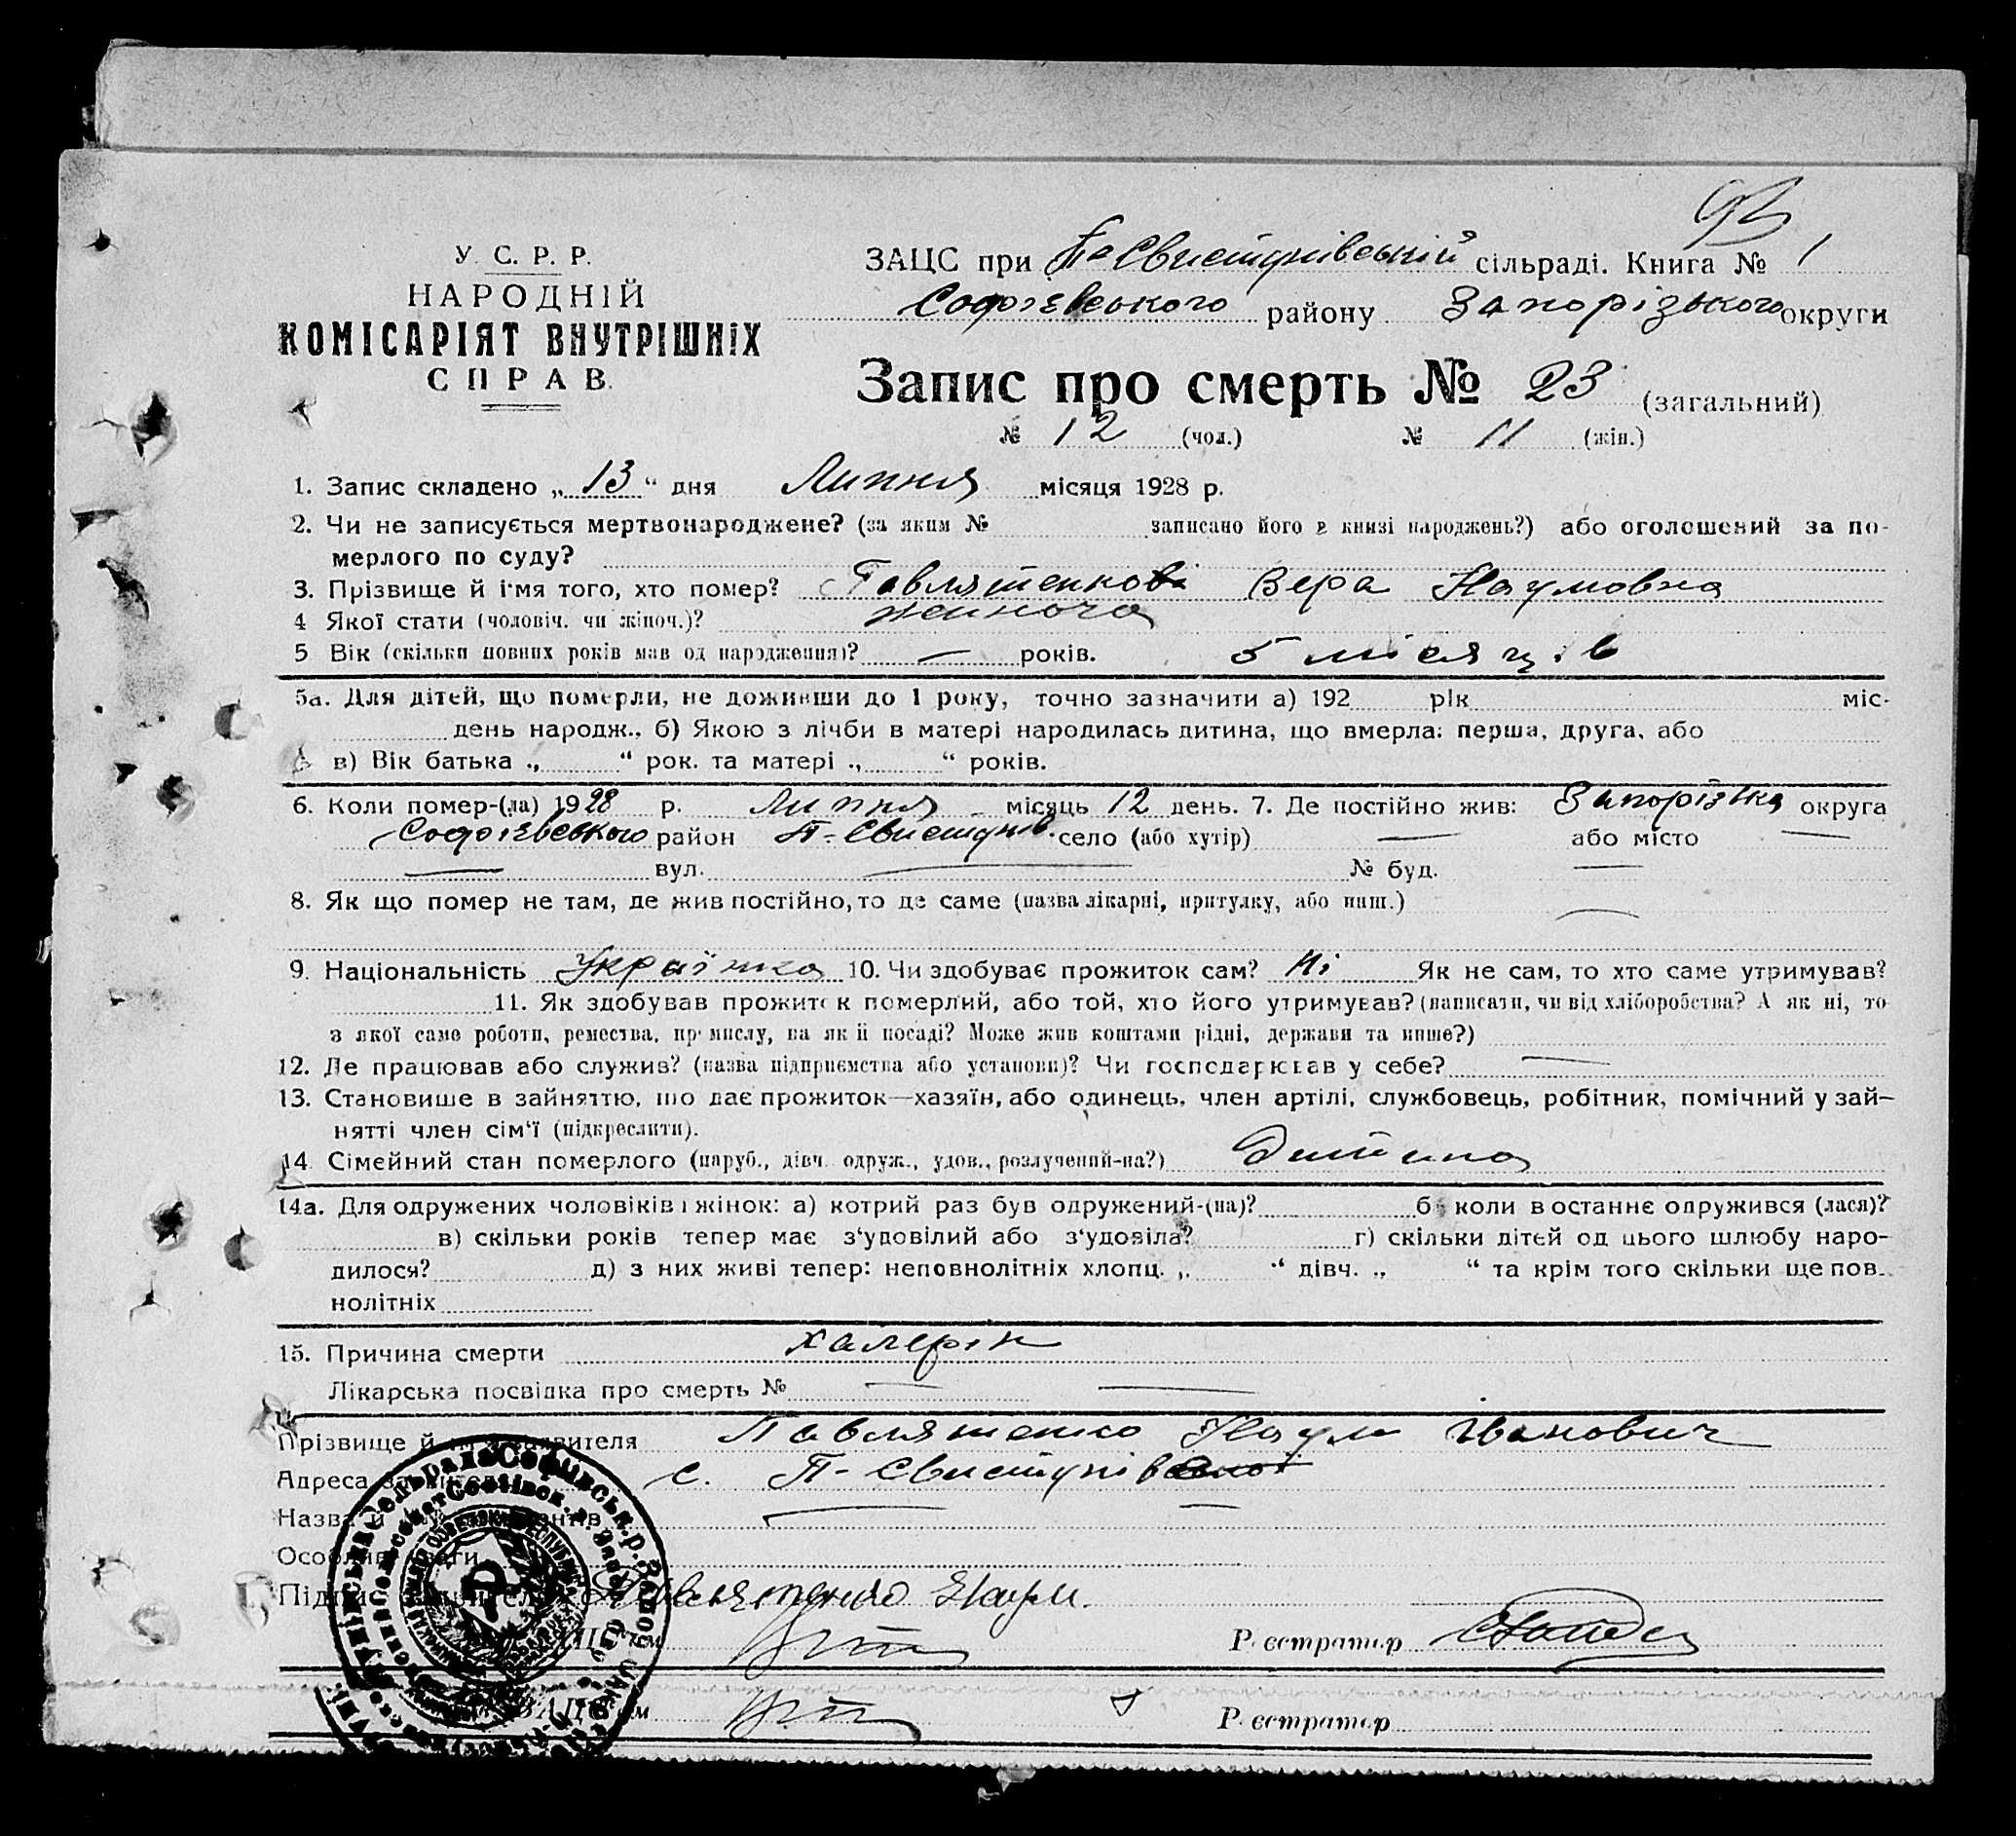 93
У. С. Р. Р.
НАРОДНІЙ
КОМІСАРІЯТ ВНУТРІШНІХ
СПРАВ.
ЗАЦС при П-Свистунівській сільраді. Книга № 1
Софіївського району Запорізького округи
Запис про смерть № 23 (загальний)
№ 12 (чол.) № 11 (жін.)
1. Запис складено „ 13 “ дня Липня місяця 1928 р.
2. Чи не записується мертвонароджене? (за яким № записано його в книзі народжень?) або оголошений за по-
мерлого по суду?
3. Прізвище й ім'я того, хто помер? Павлятенкова Вера Наумовна
4 Якої стати (чоловіч. чи жіноч.)? женноча
5 Вік (скільки повних років мав од народження)? — років. 5 місяців
5а. Для дітей, що померли, не доживши до 1 року, точно зазначити а) 192 рік міс-
день народж., б) Якою з лічби в матері народилась дитина, що вмерла: перша, друга, або
в) Вік батька „ “ рок. та матері „ “ років.
6. Коли помер-(ла) 1928 р. Липня місяць 12 день. 7. Де постійно жив: Запорізька округа
Софієвського район П-Свистунів. село (або хутір) — або місто —
— вул. — № буд. —
8. Як що помер не там, де жив постійно, то де саме (назва лікарні, притулку, або инш.) —
9. Національність Українка 10. Чи здобуває прожиток сам? Ні Як не сам, то хто саме утримував?
11. Як здобував прожиток померлий, або той, хто його утримував? (написати, чи від хліборобства? А як ні, то
з якої саме роботи, ремества, промислу, на якій посаді? Може жив коштами рідні, держави та инше?)
12. Де працював або служив? (назва підприємства або установи)? Чи господарював у себе? —
13. Становище в зайняттю, що дає прожиток—хазяїн, або одинець, член артілі, службовець, робітник, помічний у зай-
нятті член сім'ї (підкреслити).
14. Сімейний стан померлого (паруб., дівч. одруж., удов., розлучений-на?) Дитина
14а. Для одружених чоловіків і жінок: а) котрий раз був одружений-(на)? б) коли в останнє одружився (лася)?
в) скільки років тепер має з'удовілий або з'удовіла? г) скільки дітей од цього шлюбу наро-
дилося? д) з них живі тепер: неповнолітніх хлопц. „ “ дівч. „ “ та крім того скільки ще пов-
нолітніх
15. Причина смерти халерін
Лікарська посвідка про смерть № — —
Прізвище й ім'я заявителя Павлятенко Наум Іванович
Адреса заявителя с. П-Свистунівської
Назва й — —
Особливі уваги
Підпис заявителя Павлятенко Наум.
ЗАЦС'ом Реєстратор
ЗАЦС'ом Реєстратор